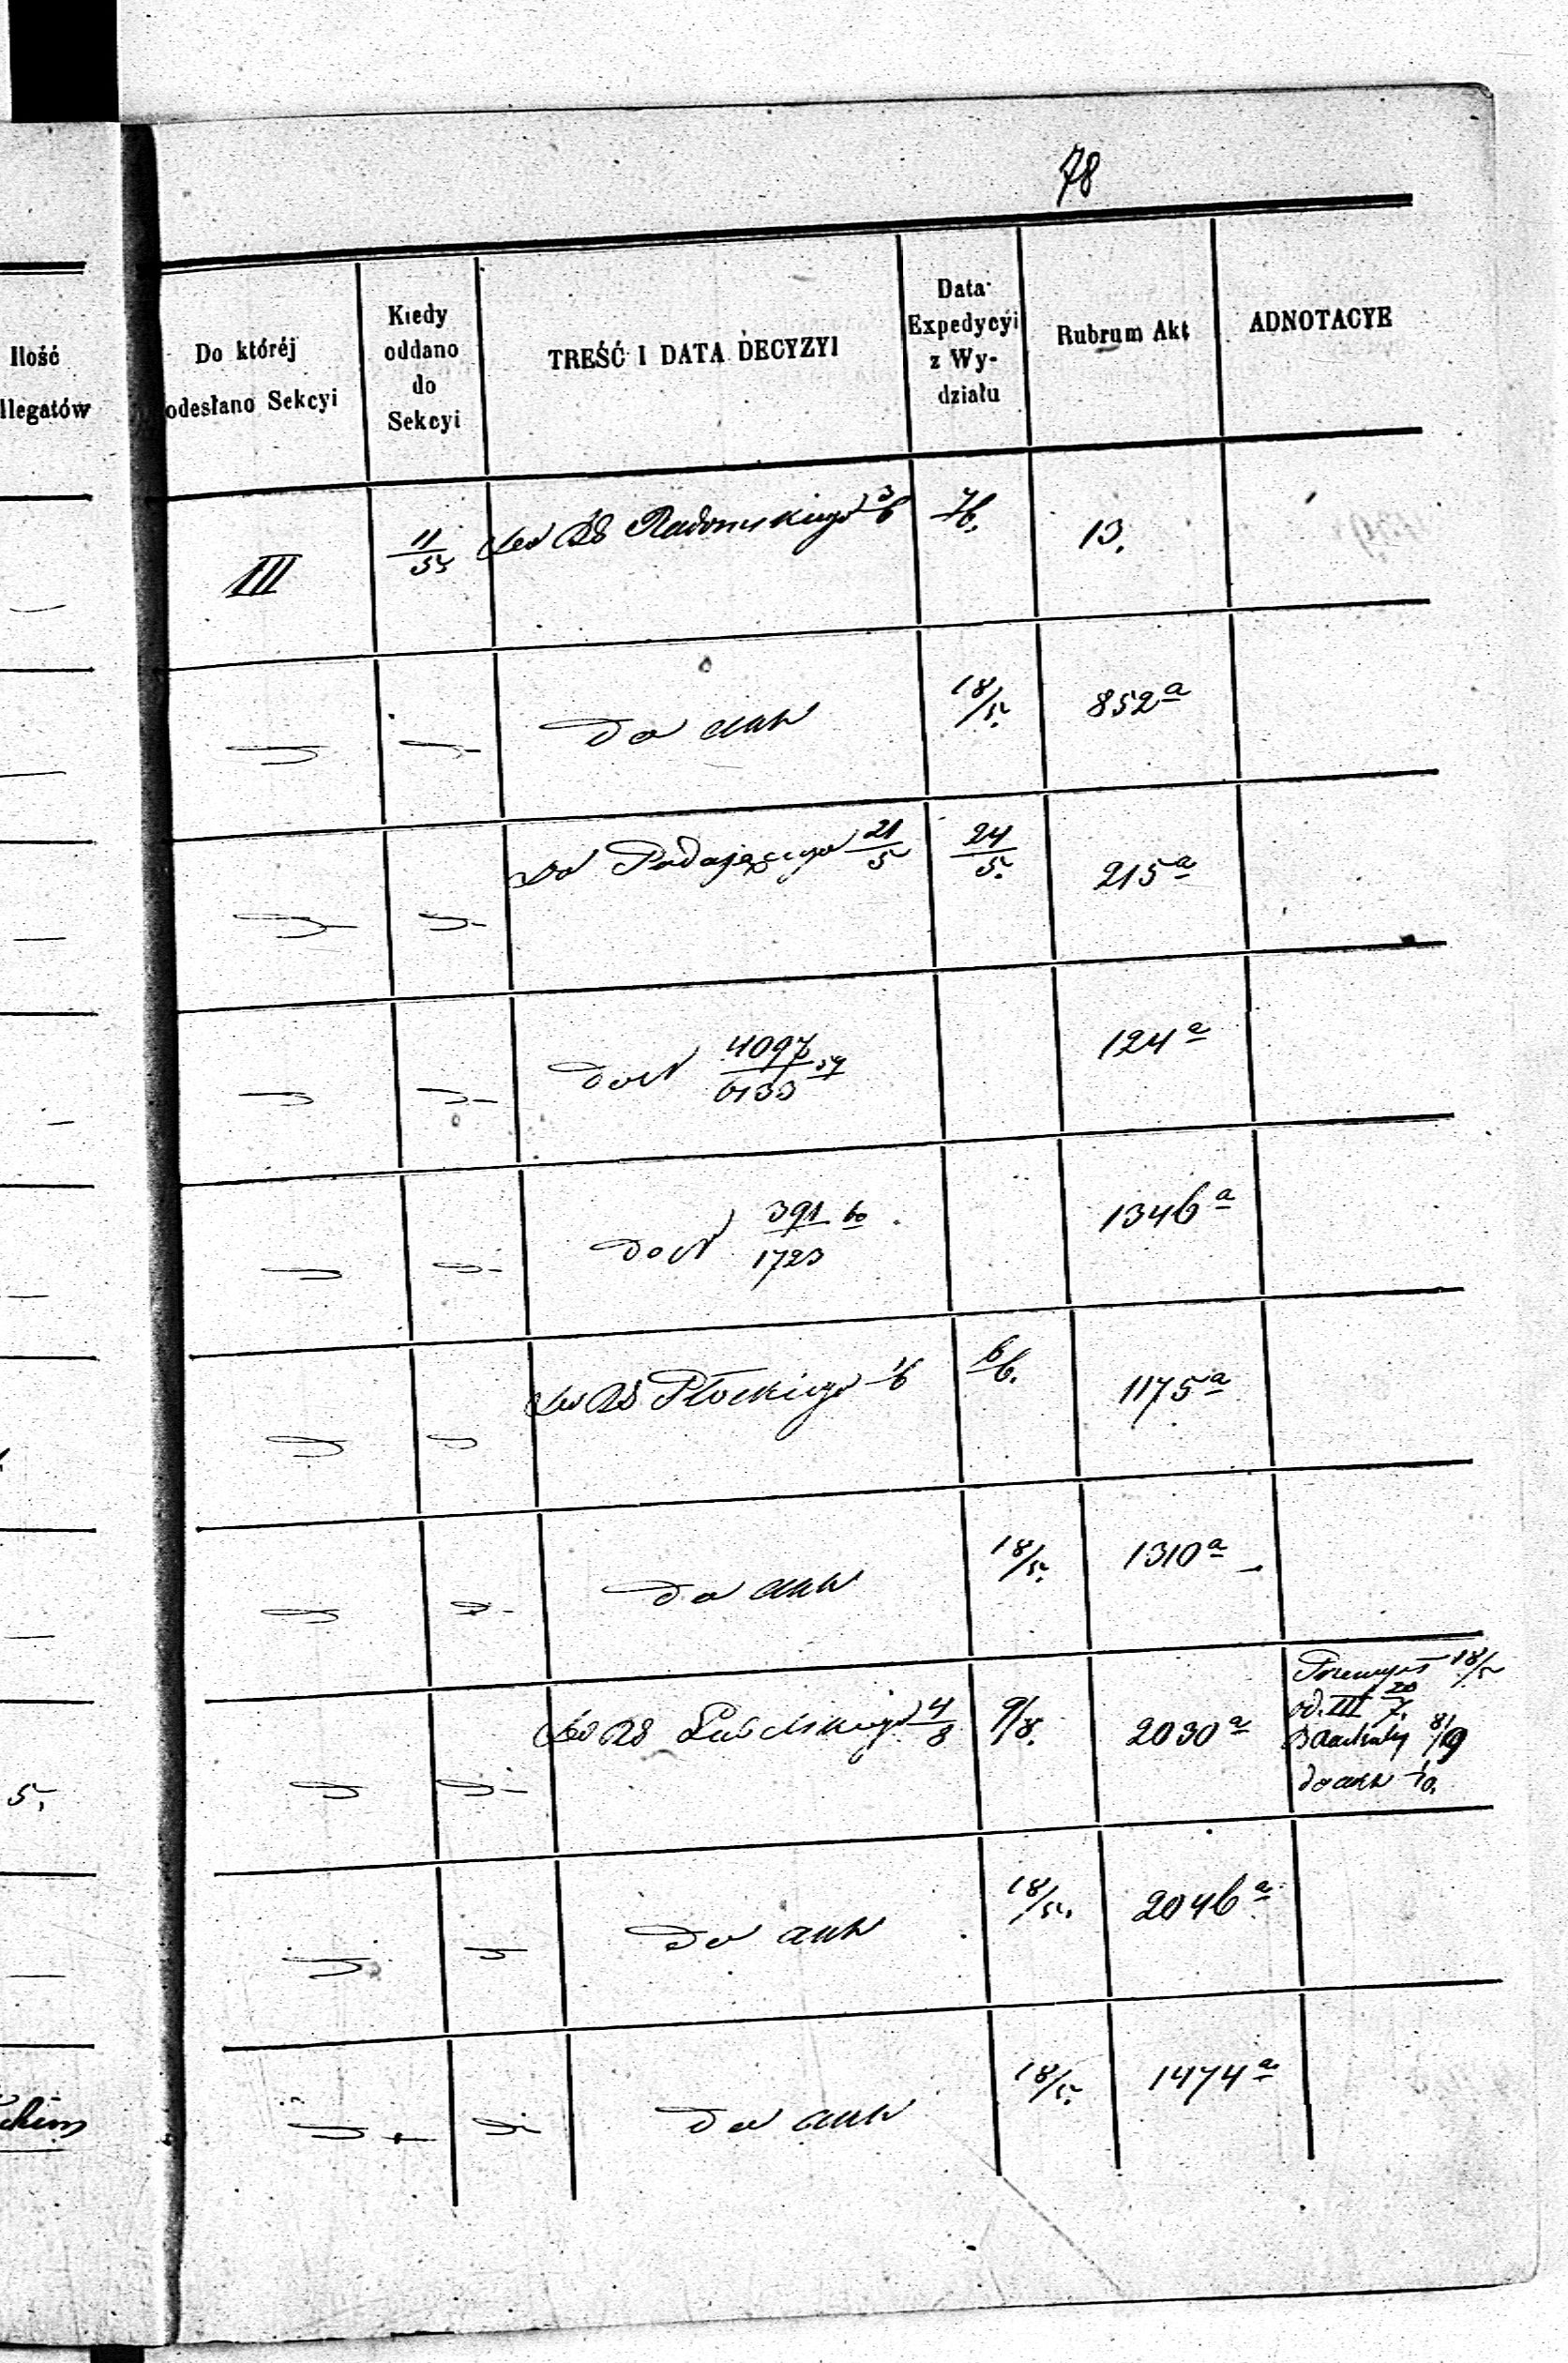 78
Ilość
llegatów
Do któréj
odesłano Sekcyi
Kiedy
oddano
do
Sekcyi
TREŚĆ I DATA DECYZYI
Data
Expedycyi
z Wy-
działu
Rubrum Akt
ADNOTACYE
III 11/5 Radomskiego 3/6 7/6. 13.
do akt 18/5. 852a
Do Podającego 21/5 24/5. 215a
do N 4097/6133 59 124a
do N 391/1723 60 1346a
Płockiego 1/6 6/6. 1175a
do akt 18/5. 1310a
Lubelskiego 4/8 9/8. 2030a
18/5
od III 20/7.
8/9
do akt
5,
do akt 18/5. 2046a
do akt 18/5. 1474a